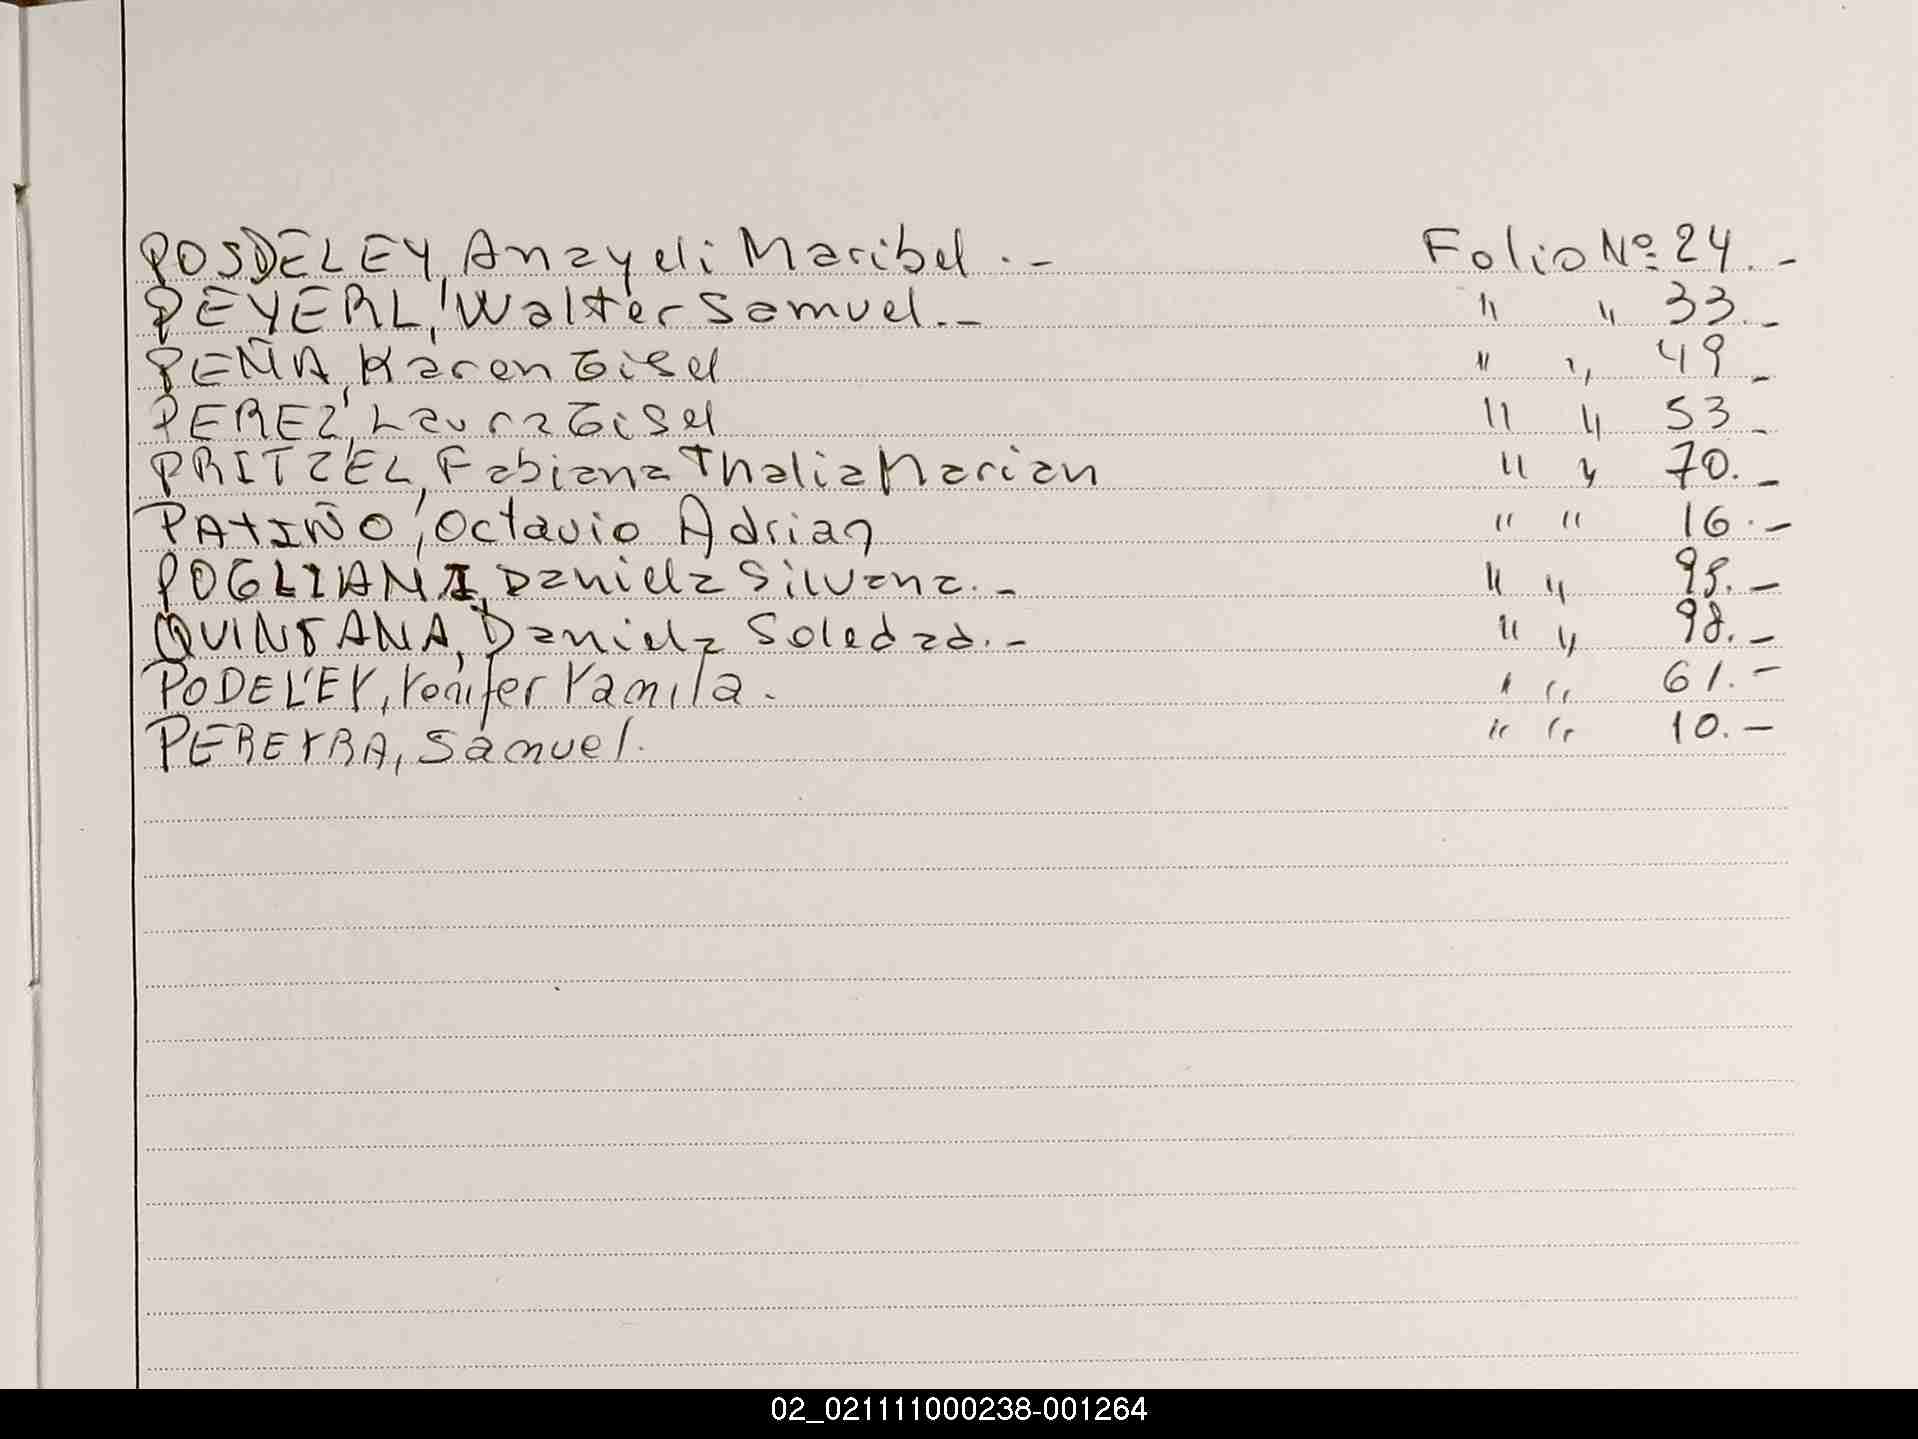 POSDELEY, Anayeli Maribel . - Folio Nº 24. -
PEYERL, Walter Samuel. - " " 33. -
PEÑA, Karen Gisel " " 49 -
PEREZ, Laura Gisel " " 53 -
PRITZEL, Fabiana Thalia Marian " " 70. -
PATIÑO, Octavio Adrian " " 16. -
POGLIANI, Daniela Silvana. - " " 95. -
QUINTANA, Daniela Soledad. - " " 98. -
PODELEY, Yenifer Yamila. " " 61. -
PEREYRA, Samuel. " " 10. -
02_021111000238-001264